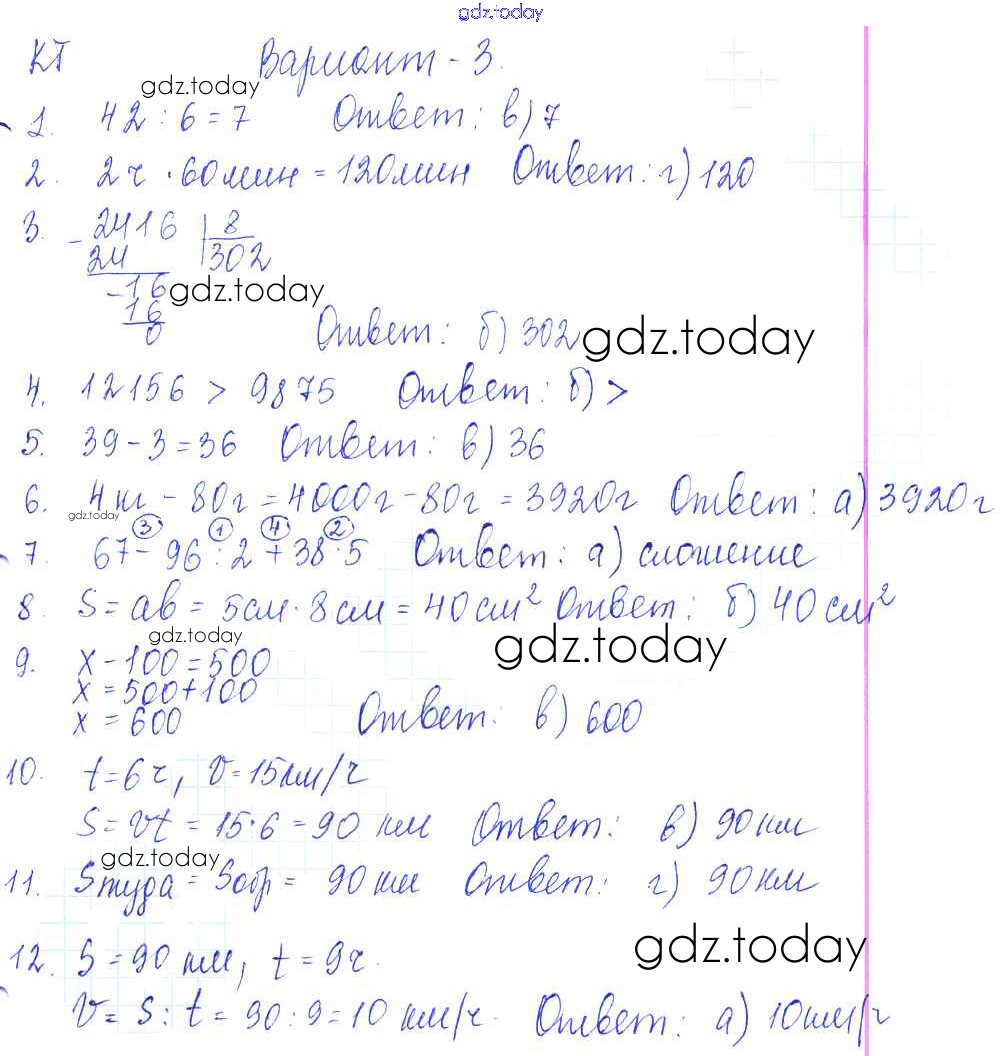 gdz.today
КТ Вариант - 3.
gdz.today
1. 42 : 6 = 7 Ответ: в) 7
2. 2 ч · 60 мин = 120 мин Ответ: г) 120
3. - 2416 | 8
24 302
- 16 gdz.today
16
0 Ответ: б) 302 gdz.today
4. 12156 > 9875 Ответ: б) >
5. 39 - 3 = 36 Ответ: в) 36
6. 4 кг - 80 г = 4000 г - 80 г = 3920 г Ответ: а) 3920 г
gdz.today
3 1 4 2
7. 67 - 96 : 2 + 38 · 5 Ответ: а) сложение
8. S = ab = 5 см · 8 см = 40 см² Ответ: б) 40 см²
gdz.today gdz.today
9. x - 100 = 500
x = 500 + 100
x = 600 Ответ: в) 600
10. t = 6 ч, v = 15 км/ч
S = vt = 15 · 6 = 90 км Ответ: в) 90 км
gdz.today
11. Sтуда = Sобр = 90 км Ответ: г) 90 км
gdz.today
12. S = 90 км, t = 9 ч.
v = S : t = 90 : 9 = 10 км/ч. Ответ: а) 10 км/ч